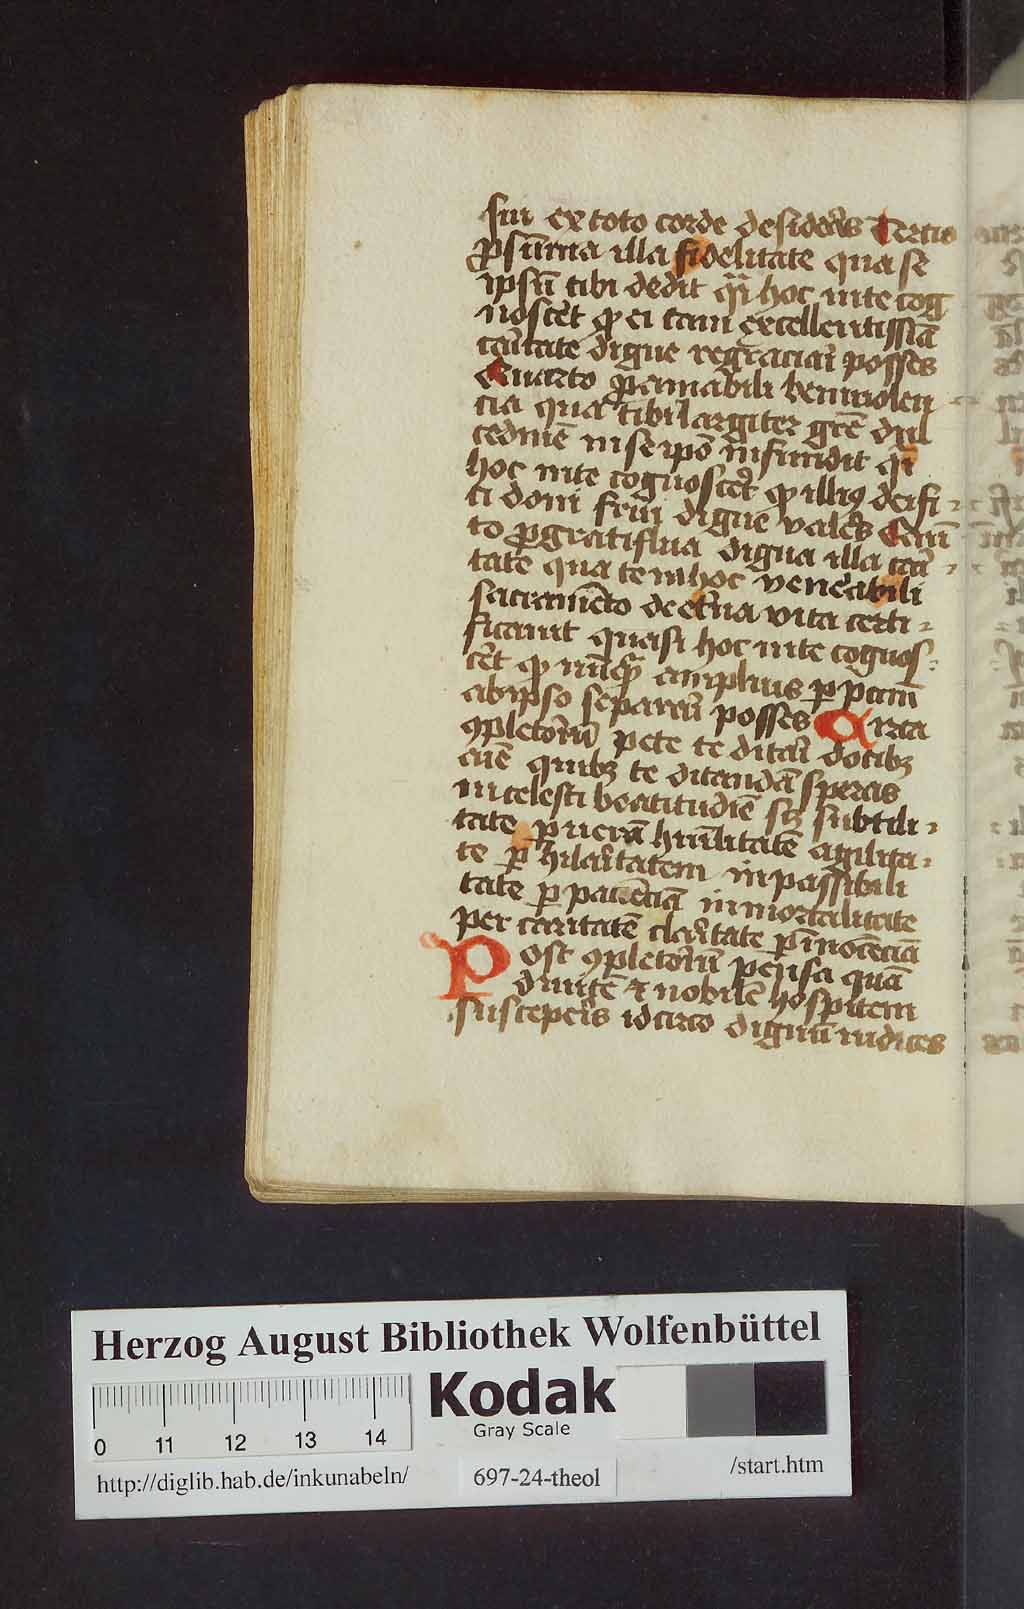 sui ex toto corde desiderãs Tercio
p sũma illa fidelitate qua se
ipsũ tibi dedit q̃i hoc in te cog
noscẽt ꝙ ei tam excellentissiã
caritate digne regraciari posses
Quarto p amabili beniuolen
cia qua tibi largiter grẽ dul
cedinẽ in se ipõ infundit q̃i
hoc in te cognosceret ꝙ illius deifi-
ci doni frui digne valeres Quin
to p gratiflua digna illa cari-
tate qua te in hoc venerabili
sacramẽto de etẽna vita certi-
ficauit quasi hoc in te cognos-
cẽt ꝙ nũq̃ amplius p pctm
ab ipso separari posses Circa
ꝯpletoriũ pete te ditari dotibꝫ
quibꝫ te ditandã speras
in celesti beatitudĩe scꝫ subtili-
tate p verã humilitatẽ agilita-
te p hilaritatem inpassibili
tate p pacienciã inmortalitate
per caritatẽ claritate p inocẽciã
Post ꝯpletoriũ pensa quã
diuitẽ & nobilẽ hospitem
susceperis idcirco dignũ iudices
Herzog August Bibliothek Wolfenbüttel
Kodak
Gray Scale
0 11 12 13 14
http://diglib.hab.de/inkunabeln/
697-24-theol
/start.htm